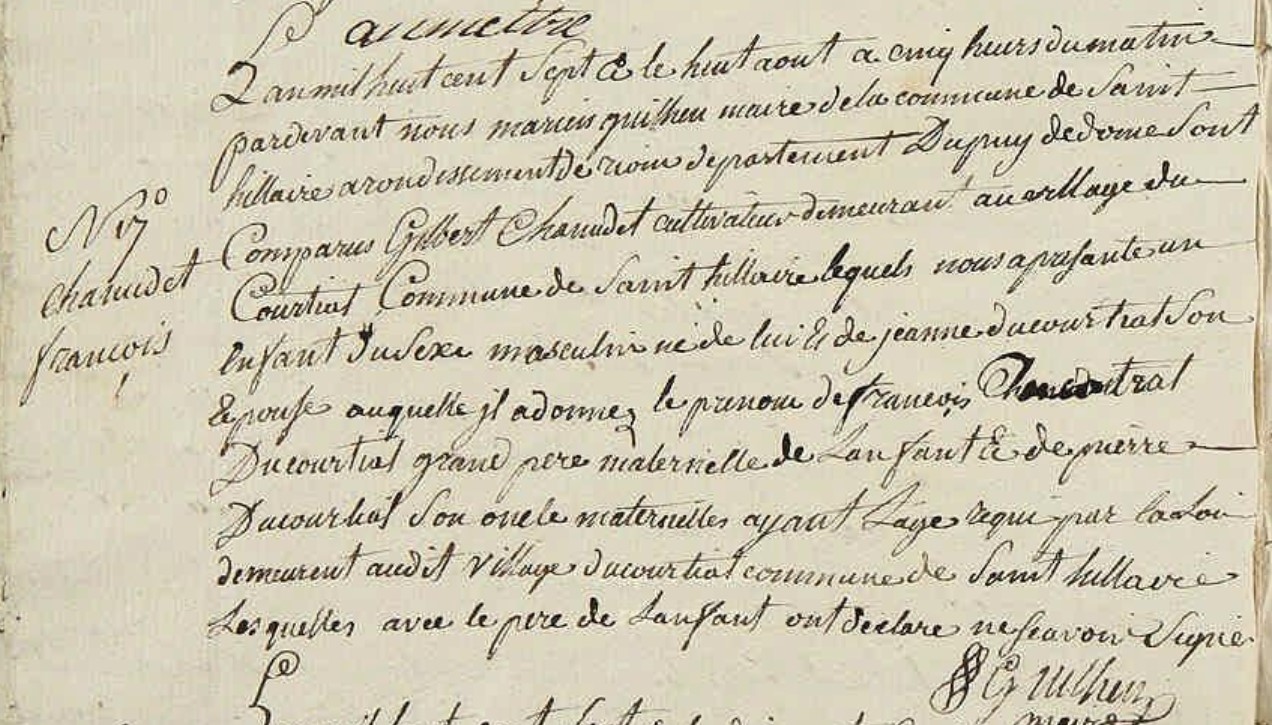 Lanmil huit cent Sept & le huit aout a cinq heurs du matin
pardevant nous mariens guilhen maire de la commune de Saint
hillaire arondissement de riom departement Dupuy de dome Sont
Comparus Gilbert Chanudet cultivateur demeurant au village du
Courtial Commune de Saint hillaire lequels nous apresante un
Enfant du Sexe masculin né de lui & de jeanne ducourtial Son
Epouse auquelle jl adonnez le prenom de francois
Ducourtial grand pere maternelle de Lanfant & de pierre
Ducourtial Son oncle maternelles ayant Lage requi par la Loi
demeurent audit village ducourtial commune de Saint hillaire
Lesquelles avec le pere de Lanfant ont declare ne scavoir Signé
Guilhen
maire
N 17°
Chanudet
francois